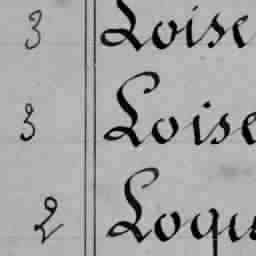 3 Loise
3 Loise
2 Loqu